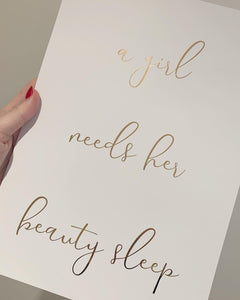 a girl
needs her
beauty sleep